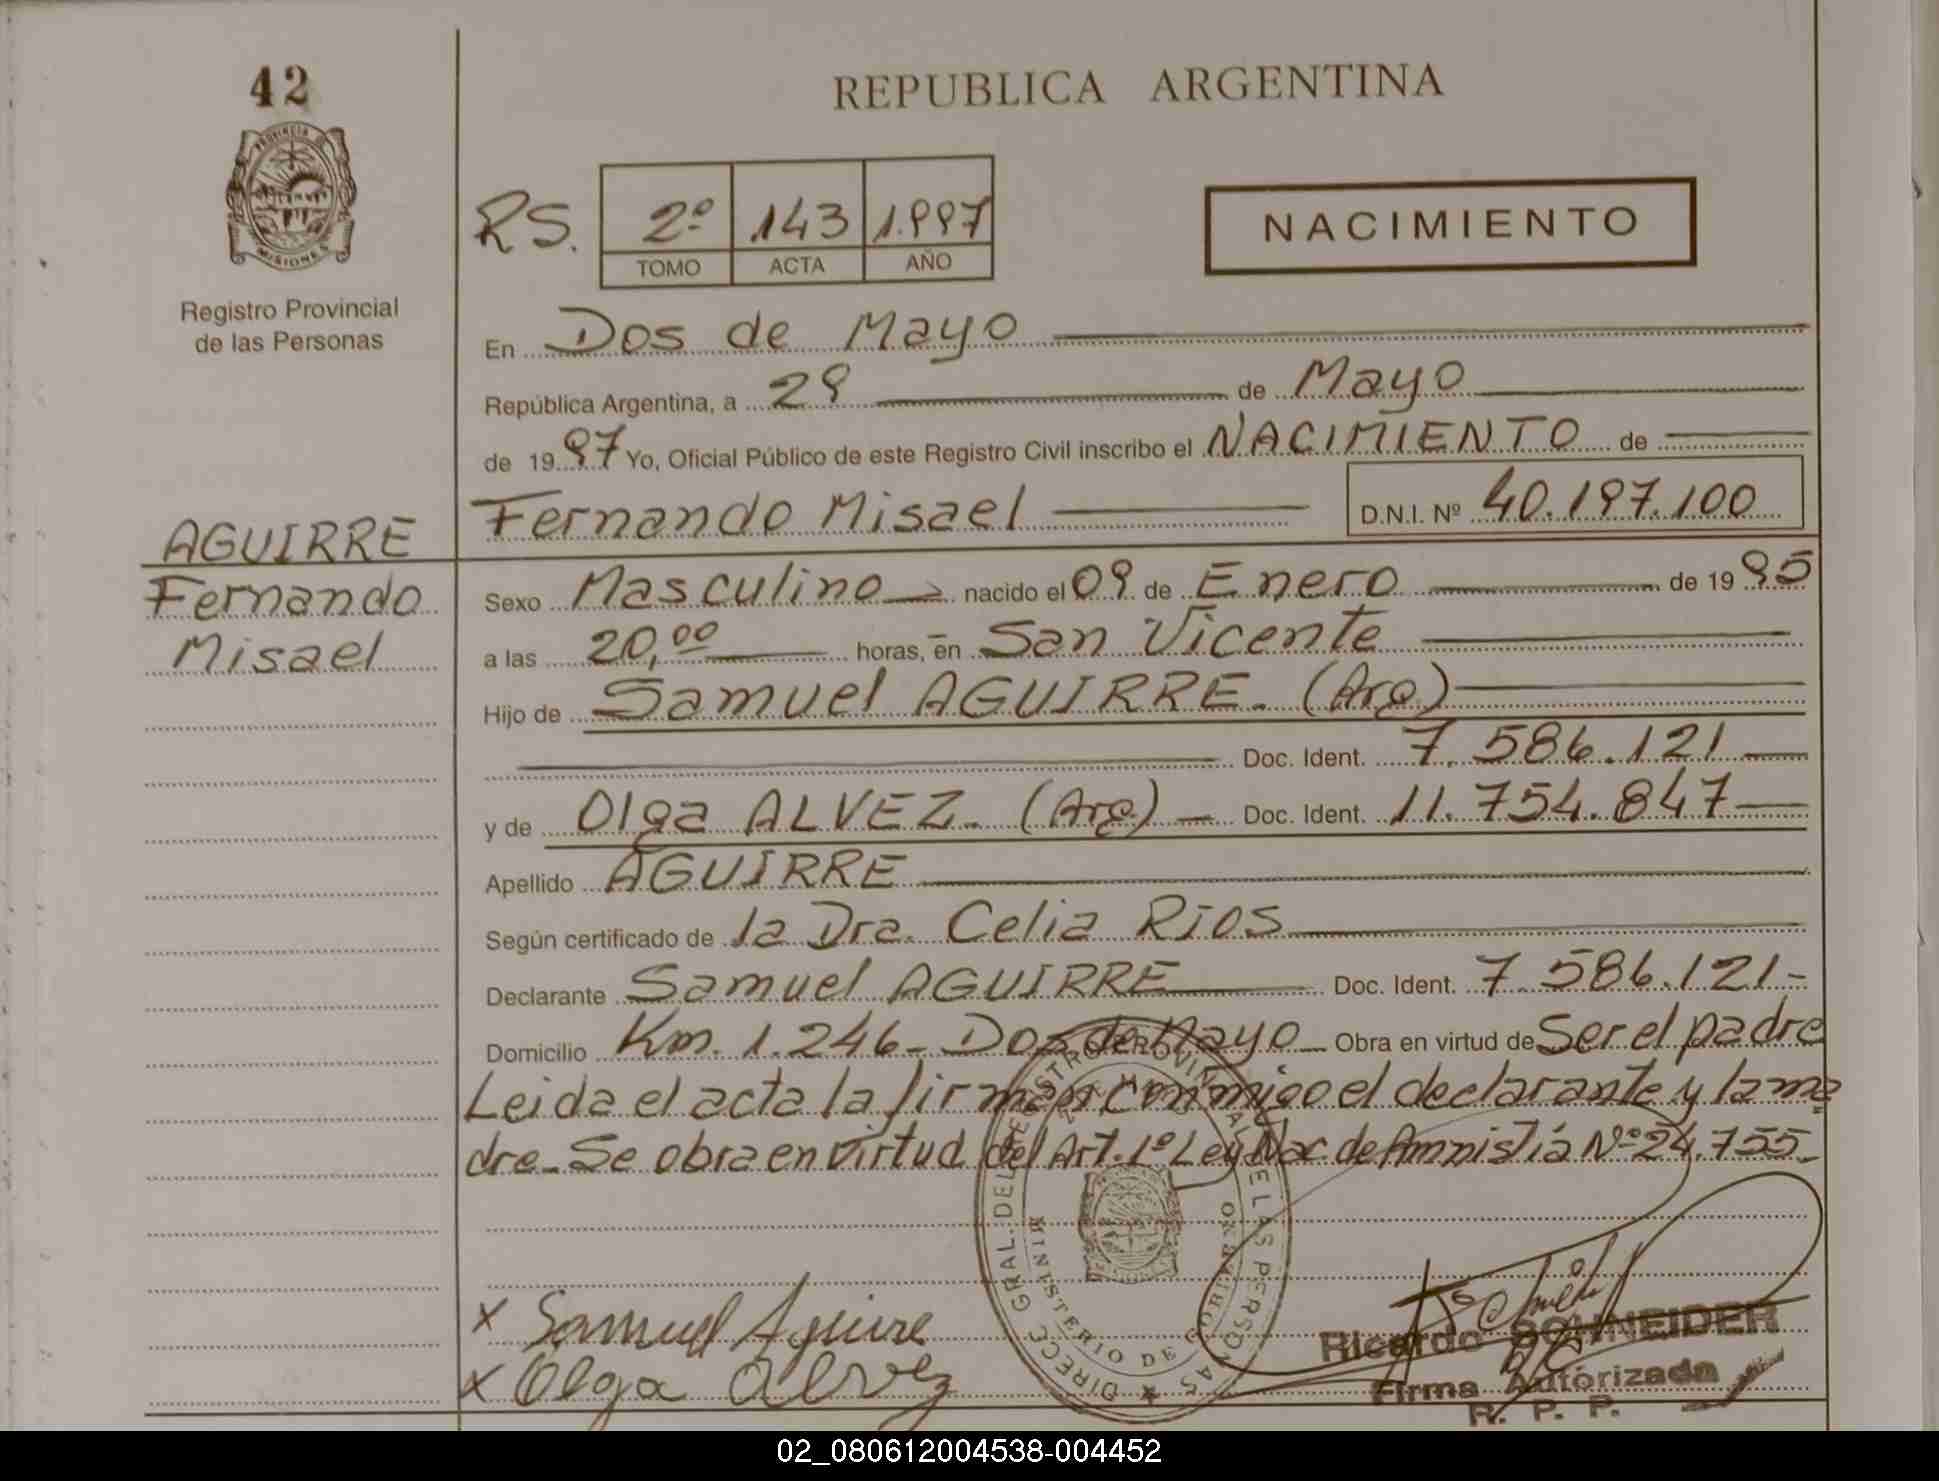 42
REPUBLICA ARGENTINA
PROVINCIA DE
MISIONES
Registro Provincial
de las Personas
RS. 2º 143 1.997
TOMO ACTA AÑO
NACIMIENTO
En Dos de Mayo
República Argentina, a 29 de Mayo
de 1997 Yo, Oficial Público de este Registro Civil inscribo el NACIMIENTO de
Fernando Misael D.N.I. Nº 40.197.100
AGUIRRE
Fernando
Misael
Sexo Masculino nacido el 09 de Enero de 1995
a las 20,00 horas, en San Vicente
Hijo de Samuel AGUIRRE. (Arg)
Doc. Ident. 7.586.121
y de Olga ALVEZ. (Arg) Doc. Ident. 11.754.847
Apellido AGUIRRE
Según certificado de la Dra. Celia Rios
Declarante Samuel AGUIRRE Doc. Ident. 7.586.121-
Domicilio Km. 1.246- Dos de Mayo Obra en virtud de Ser el padre
Leida el acta la firman conmigo el declarante y la ma
dre- Se obra en virtud del Art. 1º Ley Nac de Amnistiá Nº 24.755-
x Samuel Aguirre
x Olga Alvez
DIRECC. GRAL. DEL REGISTRO PROVINCIAL DE LAS PERSONAS
MINISTERIO DE GOBIERNO
Ricardo SCHNEIDER
Firma Autorizada
R. P. P.
02_080612004538-004452